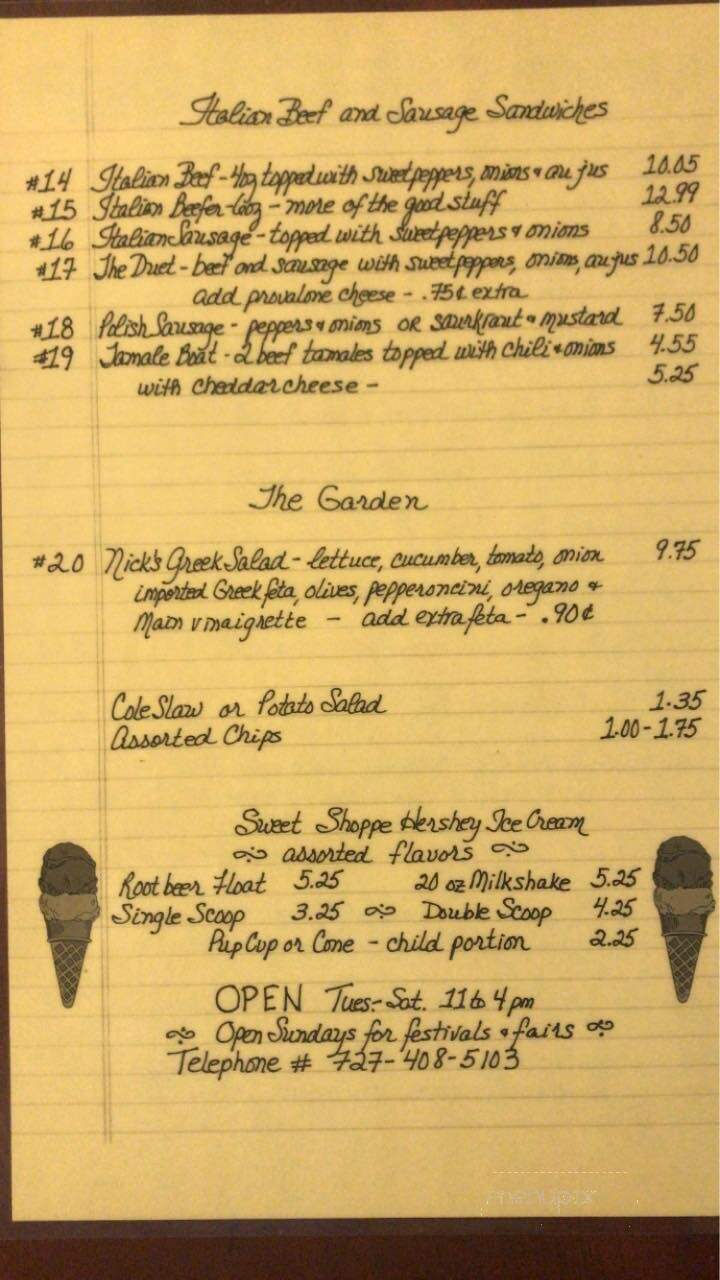 Italian Beef and Sausage Sandwiches
#14 Italian Beef - 4oz topped with sweet peppers, onions & au jus 10.05
#15 Italian Beefer - 6oz - more of the good stuff 12.99
#16 Italian Sausage - topped with sweet peppers & onions 8.50
#17 The Duet - beef and sausage with sweet peppers, onions, au jus 10.50
add provalone cheese - .75¢ extra
#18 Polish Sausage - peppers & onions OR saurkraut & mustard 7.50
#19 Tamale Boat - 2 beef tamales topped with chili & onions 4.55
with cheddar cheese - 5.25
The Garden
#20 Nick's Greek Salad - lettuce, cucumber, tomato, onion 9.75
imported Greek feta, olives, pepperoncini, oregano &
vinaigrette - add extra feta - .90¢
Cole Slaw or Potato Salad 1.35
Assorted Chips 1.00 - 1.75
Sweet Shoppe Hershey Ice Cream
assorted flavors
Rootbeer Float 5.25 20 oz Milkshake 5.25
Single Scoop 3.25 Double Scoop 4.25
Pup Cup or Cone - child portion 2.25
OPEN Tues.- Sat. 11 to 4 pm
Open Sundays for festivals & fairs
Telephone # 727-408-5103